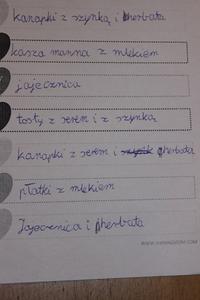 kanapki z szynką i herbata
kasza manna z mlekiem
jajecznica
tosty z serem i z szynką
kanapki z serem i herbata
płatki z mlekiem
Jajecznica i herbata